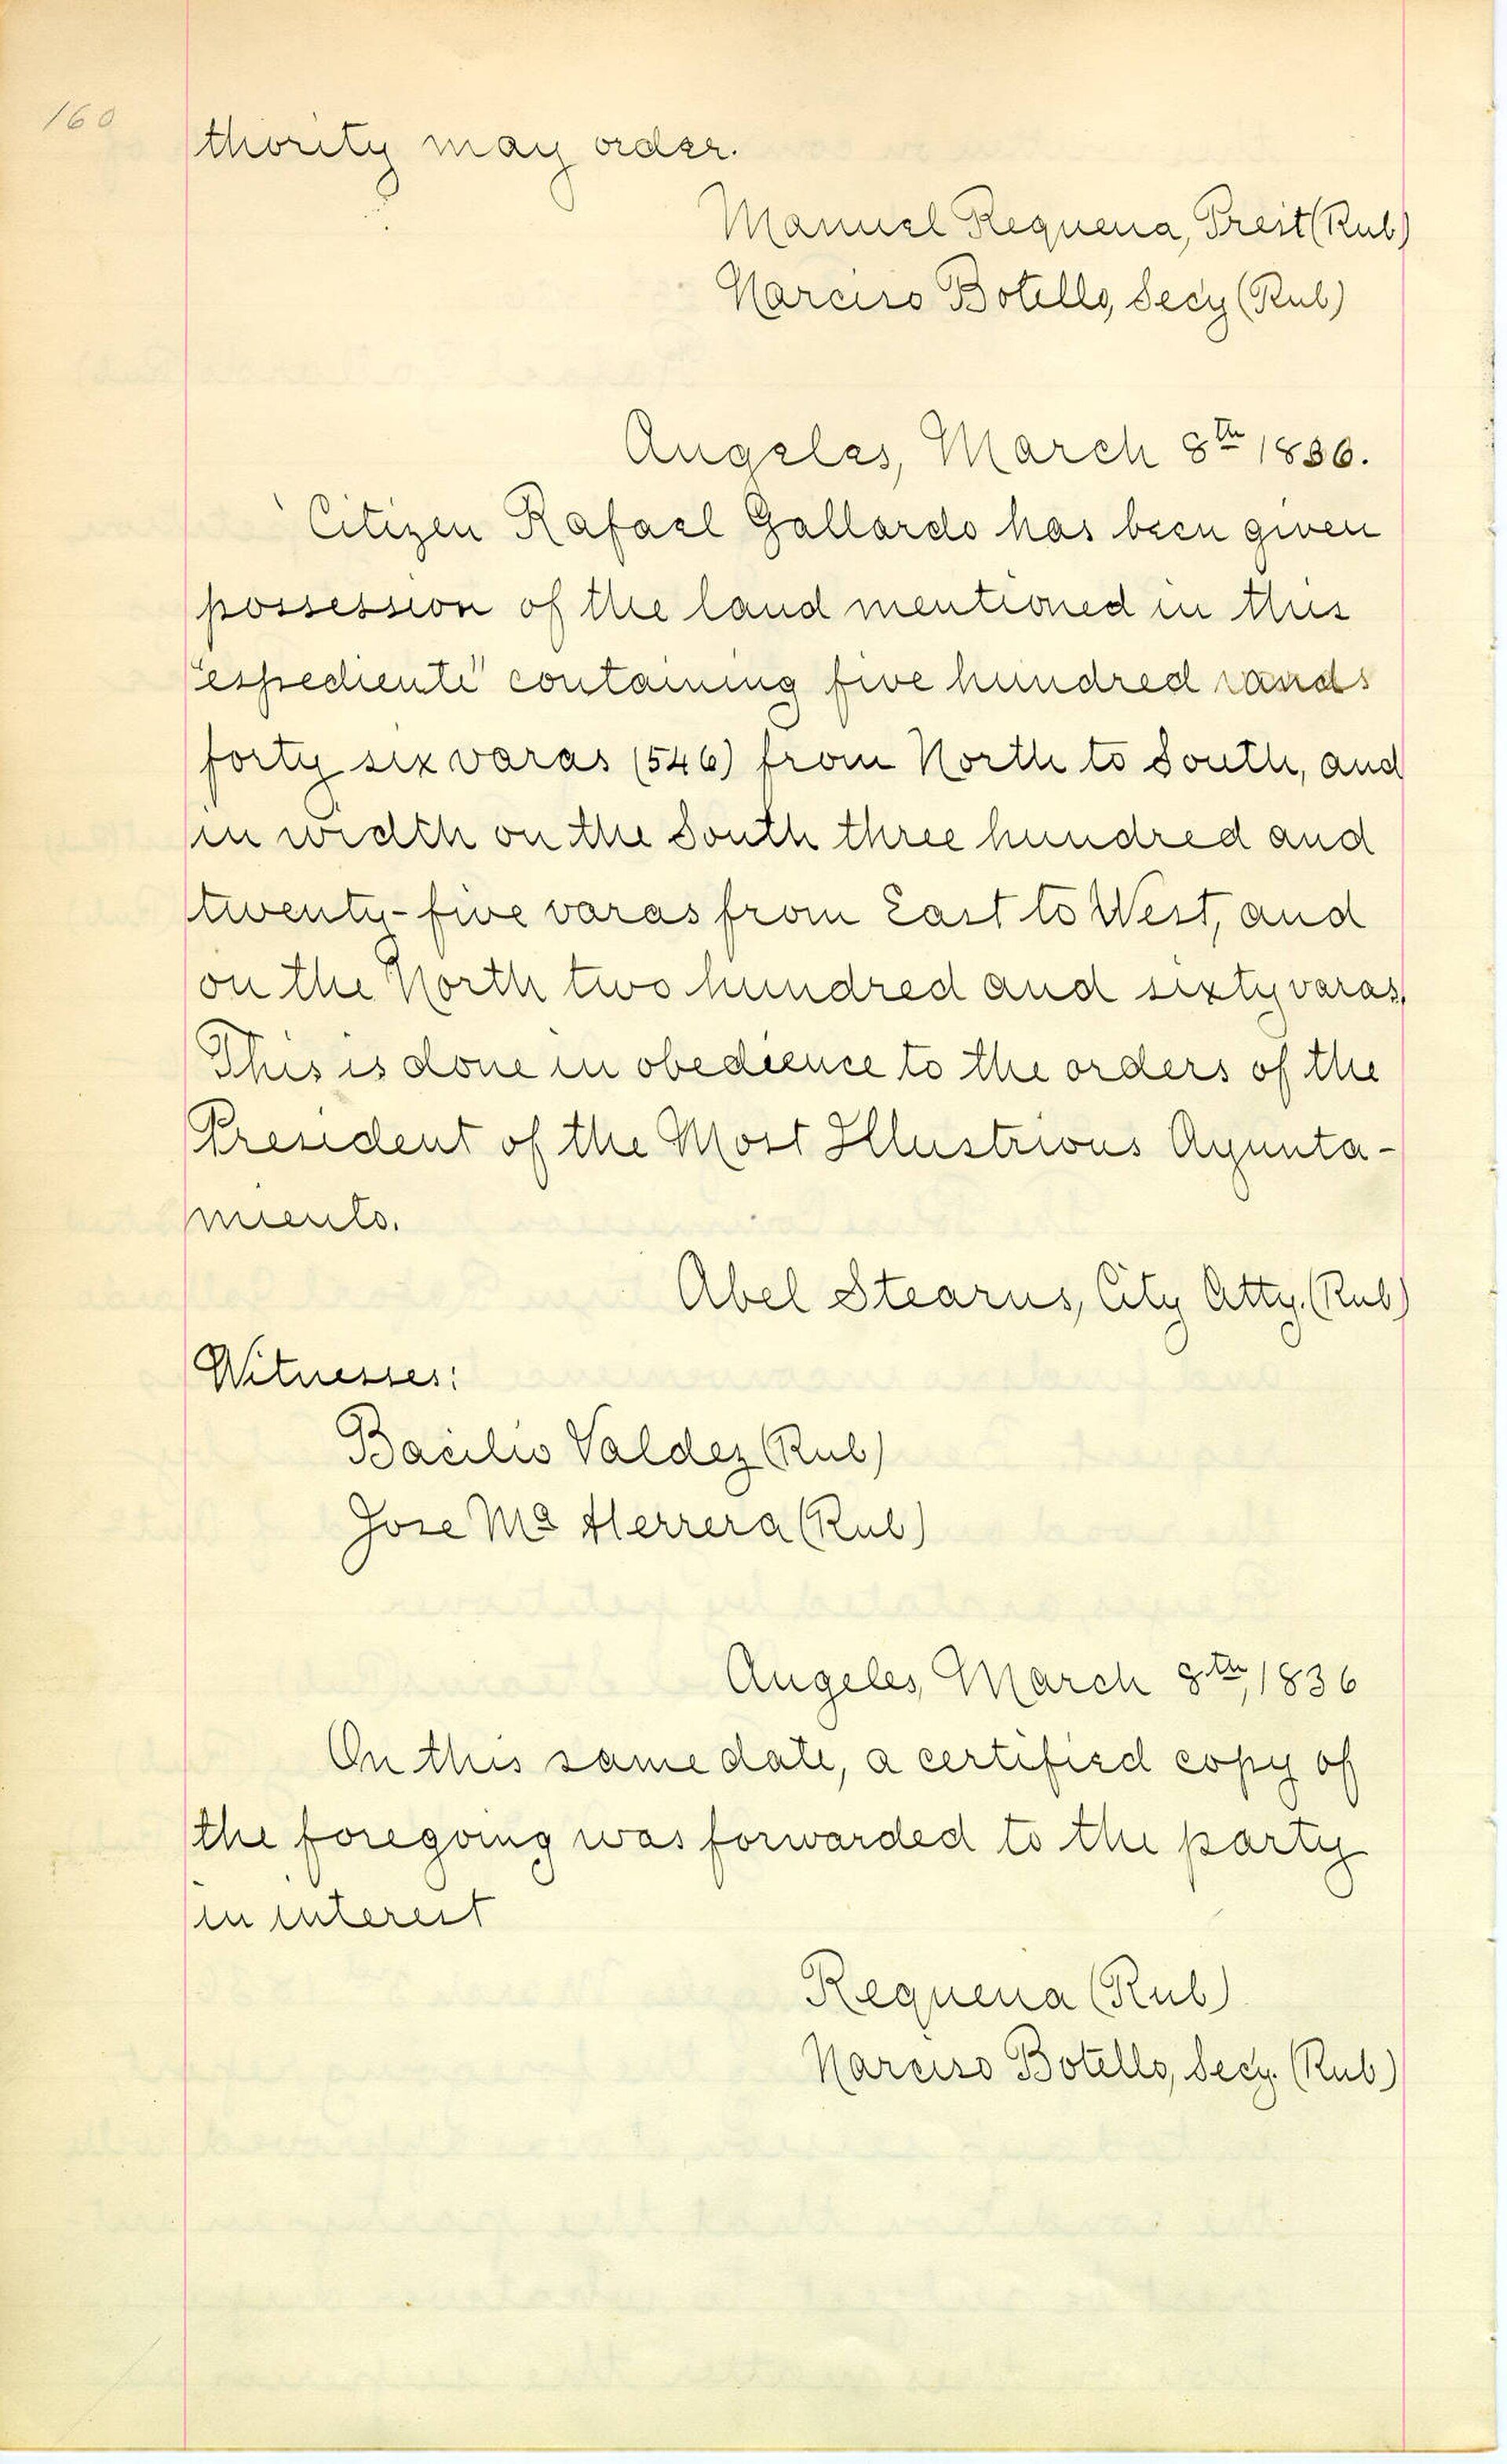 160
thority may order.
Manuel Requena, Prest (Rub)
Narciso Botello, Secy (Rub)
Angeles, March 8th 1836.
Citizen Rafael Gallardo has been given
possession of the land mentioned in this
"espediente" containing five hundred and
forty six varas (546) from North to South, and
in width on the South three hundred and
twenty-five varas from East to West, and
on the North two hundred and sixty varas.
This is done in obedience to the orders of the
President of the Most Illustrious Ayunta-
miento.
Abel Stearns, City Atty. (Rub)
Witnesses:
Bacilio Valdez (Rub)
Jose Ma Herrera (Rub)
Angeles, March 8th, 1836
On this same date, a certified copy of
the foregoing was forwarded to the party
in interest
Requena (Rub)
Narciso Botello, Secy. (Rub)